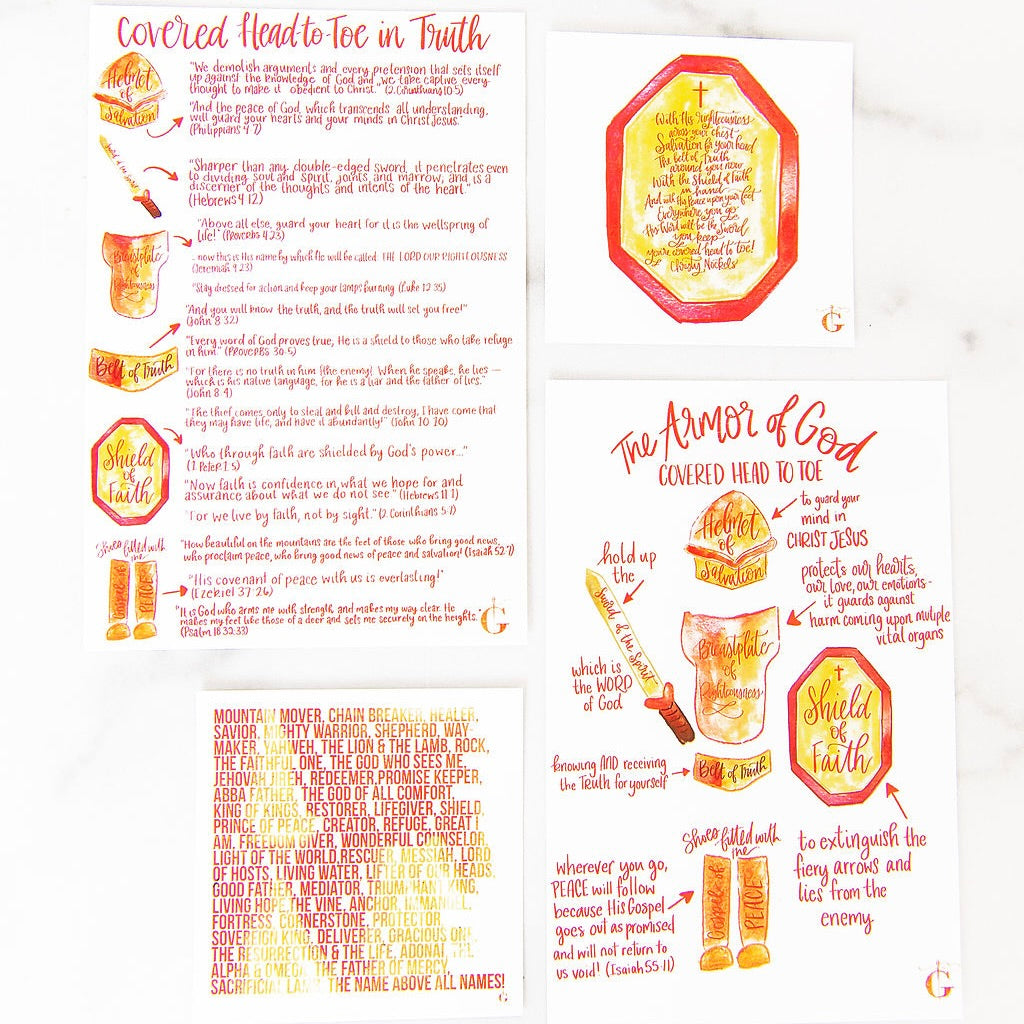 Covered Head-to-Toe in Truth
Helmet
of
Salvation
"We demolish arguments and every pretension that sets itself
up against the knowledge of God and we take captive every
thought to make it obedient to Christ." (2 Corinthians 10:5)
"And the peace of God, which transcends all understanding,
will guard your hearts and your minds in Christ Jesus."
(Philippians 4:7)
Sword of the Spirit
"Sharper than any double-edged sword, it penetrates even
to dividing soul and spirit, joints and marrow, and is a
discerner of the thoughts and intents of the heart"
(Hebrews 4:12)
Breastplate
of
Righteousness
"Above all else, guard your heart for it is the wellspring of
life!" (Proverbs 4:23)
- now this is His name by which He will be called: THE LORD OUR RIGHTEOUSNESS
(Jeremiah 9:23)
"Stay dressed for action and keep your lamps burning (Luke 12:35)
"And you will know the truth, and the truth will set you free!"
(John 8:32)
Belt of Truth
"Every word of God proves true, He is a shield to those who take refuge
in him." (Proverbs 30:5)
"For there is no truth in him (the enemy). When he speaks, he lies —
which is his native language, for he is a liar and the father of lies."
(John 8:4)
"The thief comes only to steal and kill and destroy, I have come that
they may have life, and have it abundantly!" (John 10:10)
Shield
of
Faith
"Who through faith are shielded by God's power..."
(1 Peter 1:5)
"Now faith is confidence in what we hope for and
assurance about what we do not see" (Hebrews 11:1)
"For we live by faith, not by sight." (2 Corinthians 5:7)
Shoes fitted with
me
Gospel of
PEACE
"How beautiful on the mountains are the feet of those who bring good news,
who proclaim peace, who bring good news of peace and salvation! (Isaiah 52:7)
"His covenant of peace with us is everlasting!"
(Ezekiel 37:26)
"It is God who arms me with strength and makes my way clear. He
makes my feet like those of a deer and sets me securely on the heights.
(Psalm 18:32-33)
G
With His righteousness
across your chest
Salvation for your head
The belt of Truth
around you now
With the Shield of Faith
in hand
And with His Peace upon your feet
Everywhere you go
His Word will be the Sword
you keep
you're covered head to toe!
Christy Nockels
G
The Armor of God
COVERED HEAD TO TOE
Helmet
of
Salvation
to guard your
mind in
CHRIST JESUS
hold up
the
Sword of the Spirit
which is
the WORD
of God
Breastplate
of
Righteousness
protects our hearts,
our love, our emotions-
it guards against
harm coming upon mutiple
vital organs
knowing AND receiving
the Truth for yourself
Belt of Truth
Shield
of
Faith
to extinguish the
fiery arrows and
lies from the
enemy
Shoes fitted with
me
Gospel of
PEACE
wherever you go,
PEACE will follow
because His Gospel
goes out as promised
and will not return to
us void! (Isaiah 55:11)
G
MOUNTAIN MOVER, CHAIN BREAKER, HEALER,
SAVIOR, MIGHTY WARRIOR, SHEPHERD, WAY-
MAKER, YAHWEH, THE LION & THE LAMB, ROCK,
THE FAITHFUL ONE, THE GOD WHO SEES ME,
JEHOVAH JIREH, REDEEMER,PROMISE KEEPER,
ABBA FATHER, THE GOD OF ALL COMFORT,
KING OF KINGS, RESTORER, LIFEGIVER, SHIELD,
PRINCE OF PEACE, CREATOR, REFUGE, GREAT I
AM, FREEDOM GIVER, WONDERFUL COUNSELOR,
LIGHT OF THE WORLD,RESCUER, MESSIAH, LORD
OF HOSTS, LIVING WATER, LIFTER OF OUR HEADS,
GOOD FATHER, MEDIATOR, TRIUMPHANT KING,
LIVING HOPE,THE VINE, ANCHOR, IMMANUEL,
FORTRESS, CORNERSTONE, PROTECTOR,
SOVEREIGN KING, DELIVERER, GRACIOUS ONE,
THE RESURRECTION & THE LIFE, ADONAI, THE
ALPHA & OMEGA, THE FATHER OF MERCY,
SACRIFICIAL LAMB, THE NAME ABOVE ALL NAMES!
G